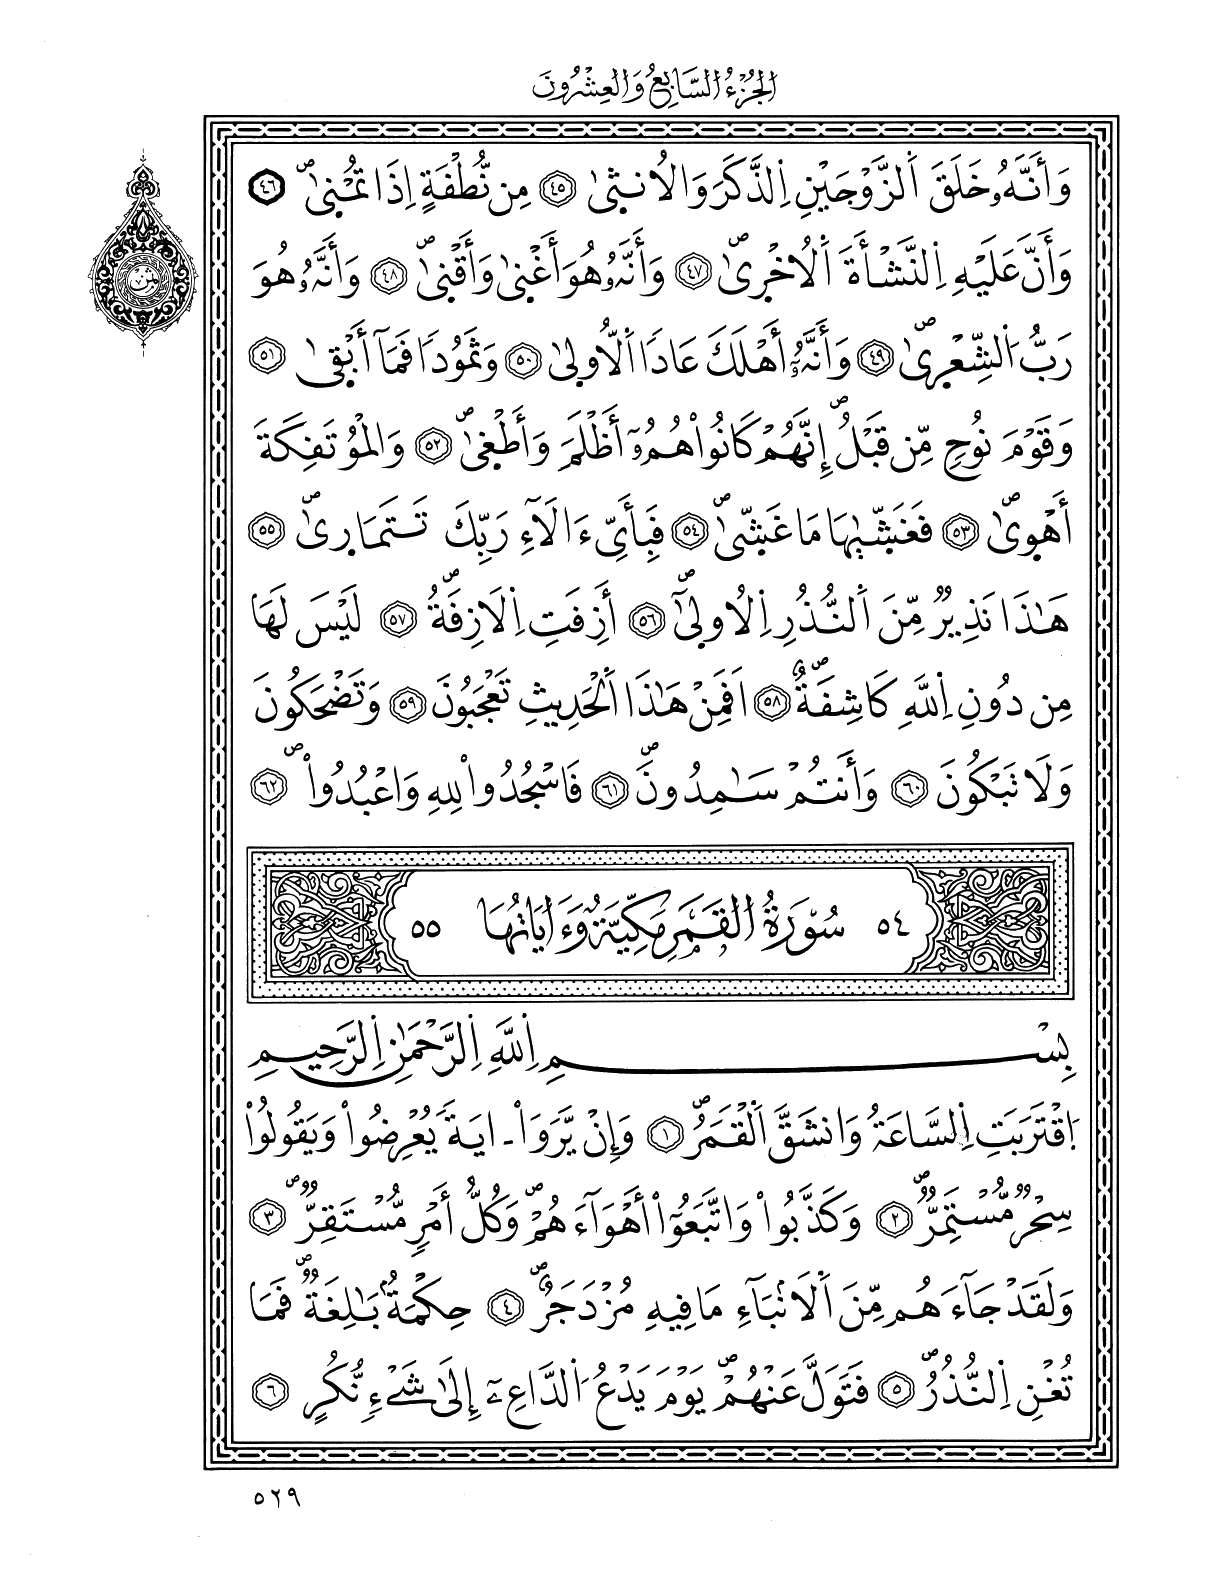 الجزء السابع والعشرون
وَأَنَّهُۥ خَلَقَ اَ۬لزَّوْجَيْنِ اِ۬لذَّكَرَ وَالُانث۪ىٰ ٤٥ مِن نُّطْفَةٍ إِذَا تُمْن۪ىٰۖ ٤٦
وَأَنَّ عَلَيْهِ اِ۬لنَّشْأَةَ اَ۬لُاخْر۪ىٰۖ ٤٧ وَأَنَّهُۥ هُوَ أَغْن۪ىٰ وَأَقْن۪ىٰۖ ٤٨ وَأَنَّهُۥ هُوَ
رَبُّ اُ۬لشِّعْر۪ىٰۖ ٤٩ وَأَنَّهُۥٓ أَهْلَكَ عَاداَ اَ۬لُّاول۪ىٰ ٥٠ وَثَمُوداٗ فَمَآ أَبْق۪ىٰ ٥١
وَقَوْمَ نُوحٖ مِّن قَبْلُۖ إِنَّهُمْ كَانُواْ هُمُۥٓ أَظْلَمَ وَأَطْغ۪ىٰۖ ٥٢ وَالْمُوتَفِكَةَ
أَهْو۪ىٰۖ ٥٣ فَغَشّ۪يٰهَا مَا غَشّ۪ىٰۖ ٥٤ فَبِأَيِّ ءَالَآءِ رَبِّكَ تَتَمَار۪ىٰۖ ٥٥
هَٰذَا نَذِيرٞ مِّنَ اَ۬لنُّذُرِ اِ۬لُاول۪ىٰٓۖ ٥٦ أَزِفَتِ اِ۬لَازِفَةُۖ ٥٧ لَيْسَ لَهَا
مِن دُونِ اِ۬للَّهِ كَاشِفَةٌۖ ٥٨ اَفَمِنْ هَٰذَا اَ۬لْحَدِيثِ تَعْجَبُونَ ٥٩ وَتَضْحَكُونَ
وَلَا تَبْكُونَ ٦٠ وَأَنتُمْ سَٰمِدُونَۖ ٦١ فَاسْجُدُواْ لِلهِ وَاعْبُدُواْۖ ٦٢
٥٤ سُورَةُ اُ۬لْقَمَرِ مَكِّيَّةٌ وَءَايَاتُهَا ٥٥
بِسْمِ اِ۬للَّهِ اِ۬لرَّحْمَٰنِ اِ۬لرَّحِيمِ
اِ۪قْتَرَبَتِ اِ۬لسَّاعَةُ وَانشَقَّ اَ۬لْقَمَرُۖ ١ وَإِنْ يَّرَوَاْ ـ ايَةٗ يُعْرِضُواْ وَيَقُولُواْ
سِحْرٞ مُّسْتَمِرّٞۖ ٢ وَكَذَّبُواْ وَاتَّبَعُوٓاْ أَهْوَآءَهُمْۖ وَكُلُّ أَمْرٖ مُّسْتَقِرّٞۖ ٣
وَلَقَدْ جَآءَهُم مِّنَ اَ۬لَانۢبَآءِ مَا فِيهِ مُزْدَجَرٌۖ ٤ حِكْمَةُۢ بَٰلِغَةٞۖ فَمَا
تُغْنِ اِ۬لنُّذُرُۖ ٥ فَتَوَلَّ عَنْهُمْۖ يَوْمَ يَدْعُ اُ۬لدَّاعِۦٓ إِلَىٰ شَےْءٖ نُّكُرٍ ٦
٥٢٩